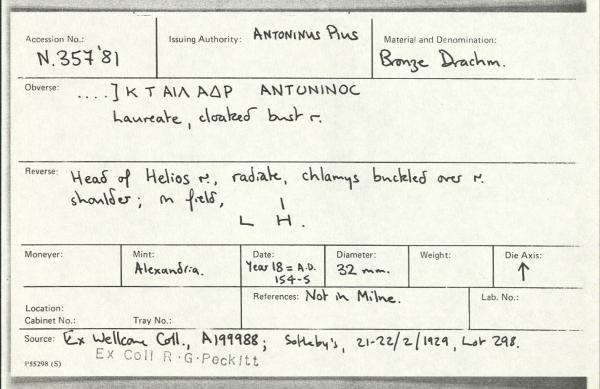 Accession No.: Issuing Authority: ANTONINUS PIUS Material and Denomination:
N.357'81 Bronze Drachm.
Obverse: ....] Κ Τ ΑΙΛ ΑΔΡ ΑΝΤΩΝΙΝΟC
Laureate, cloaked bust r.
Reverse: Head of Helios r., radiate, chlamys buckled over r.
shoulder; in field, I
L H.
Moneyer: Mint: Date: Diameter: Weight: Die Axis:
Alexandria. Year 18 = A.D. 32 mm. ↑
154-5
References: Not in Milne. Lab. No.:
Location:
Cabinet No.: Tray No.:
Source: Ex Wellcome Coll., A199988; Sotheby's, 21-22/2/1929, Lot 298.
Ex Coll R.G. Peckitt
P55298 (S)